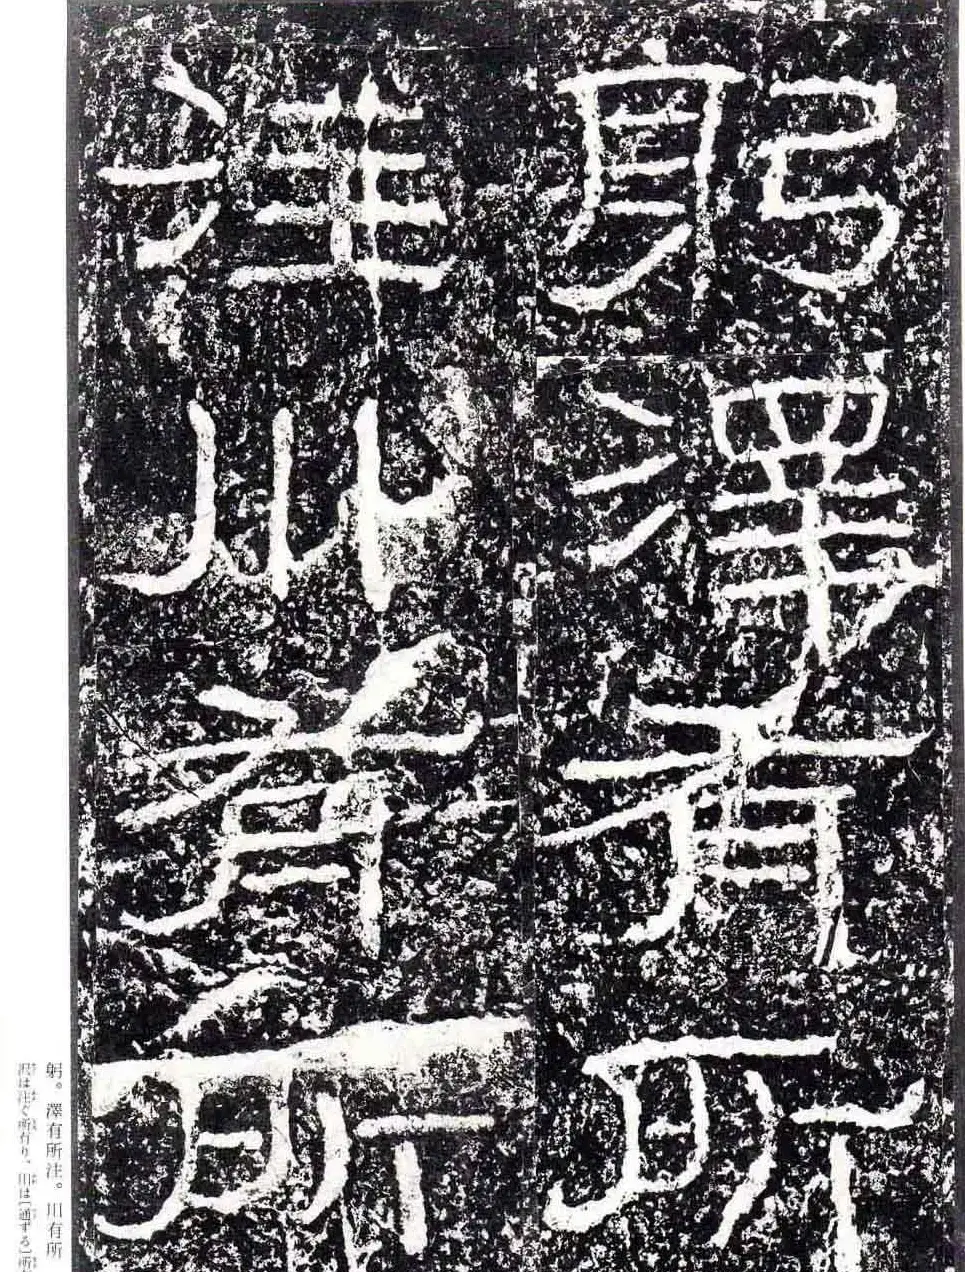 躬澤有所
注川有所
躬。澤有所注。川有所
沢は注ぐ所有り、川は〔通ずる〕所